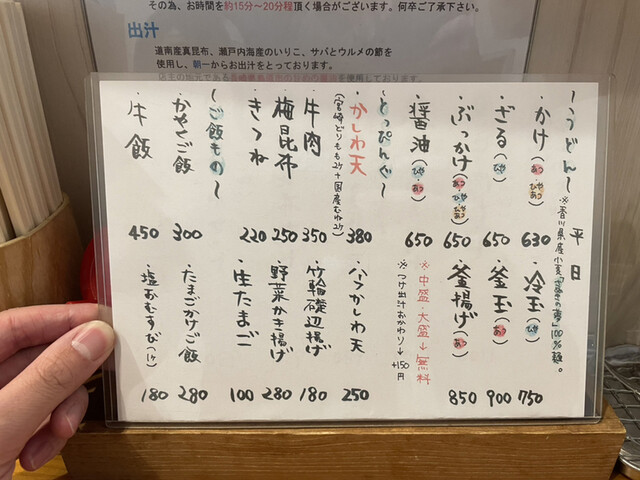 その為、お時間を約15分～20分程頂く場合がございます。何卒ご了承下さい。
出汁
道南産真昆布、瀬戸内海産のいりこ、サバとウルメの節を
使用し、朝一からお出汁をとっております。
～うどん～ 平日
※香川県産小麦「さぬきの夢」100%麺。
かけ(あつ・ひや・ひやあつ) 630
ざる(ひや) 650
ぶっかけ(あつ・ひや・ひやあつ) 650
醤油(ひや・あつ) 650
冷玉(ひや) 750
釜玉(あつ) 900
釜揚げ(あつ) 850
※中盛・大盛→無料
※つけ出汁おかわり→+150円
～とっぴんぐ～
かしわ天 380
(宮崎どりもも2ケ+国産むね2ケ)
牛肉 350
梅昆布 250
きつね 220
ハーフかしわ天 250
竹輪磯辺揚げ 180
野菜かき揚げ 280
生たまご 100
～ご飯もの～
かやくご飯 300
牛飯 450
たまごかけご飯 280
塩おむすび(1ケ) 180